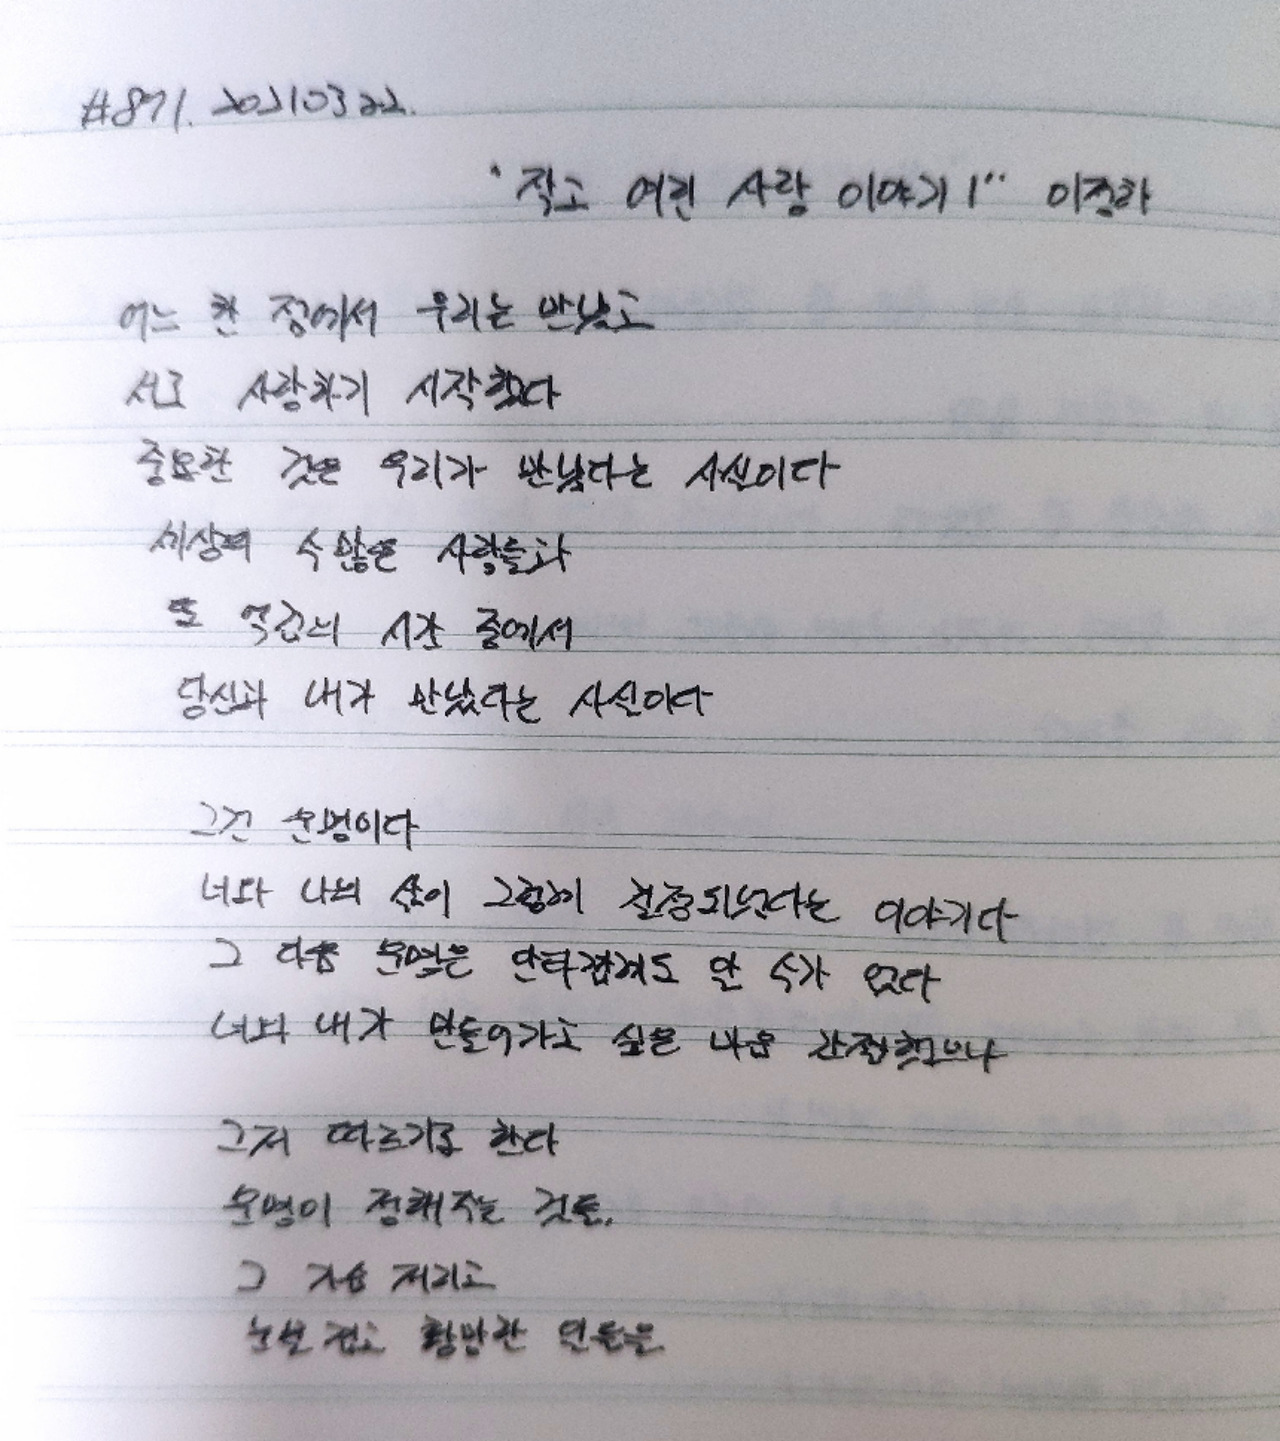 #871. 20210322.
"작고 어린 사랑 이야기 1" 이정하
어느 한 점에서 우리는 만났고
서로 사랑하기 시작했다
중요한 것은 우리가 만났다는 사실이다
세상의 수많은 사람들과
또 억겁의 시간 중에서
당신과 내가 만났다는 사실이다
그건 운명이다
너와 나의 삶이 그렇게 결정되었다는 이야기다
그 다음 운명은 안타깝게도 알 수가 없다
너와 내가 만들어가고 싶은 마음 간절했으나
그저 따르기로 한다
운명이 정해주는 것들,
그 가슴 저리고
눈물겹고 황망한 일들을